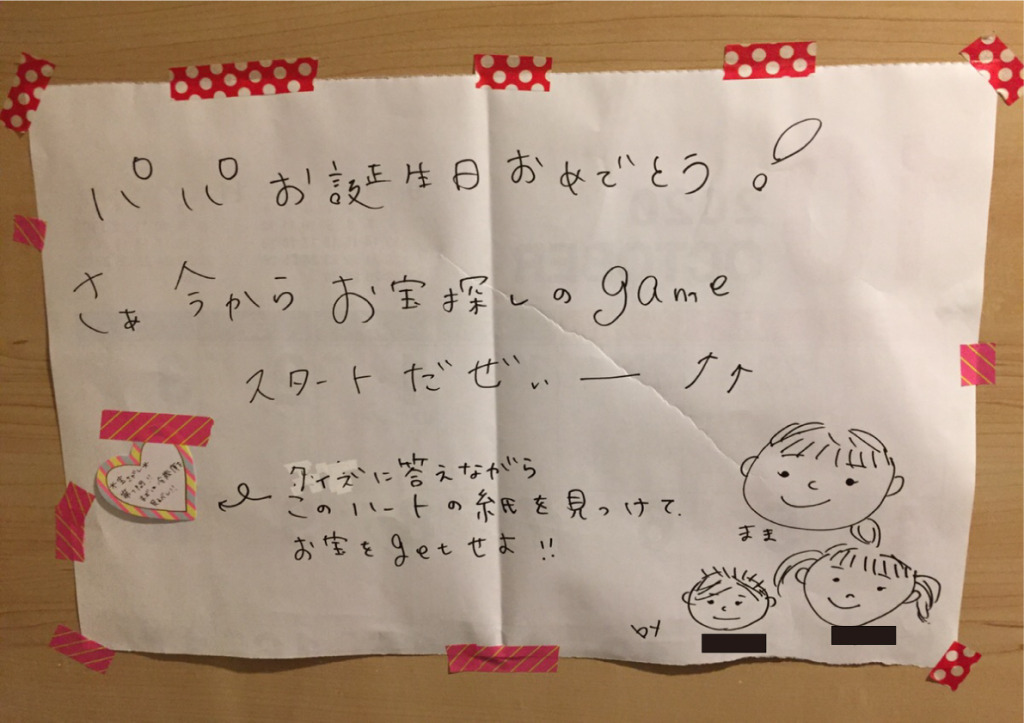 パパお誕生日おめでとう!
さぁ今からお宝探しのgame
スタートだぜぃー↑↑
クイズに答えながら
このハートの紙を見つけて、
お宝をgetせよ!!
まま
by
2020
OCTOBER